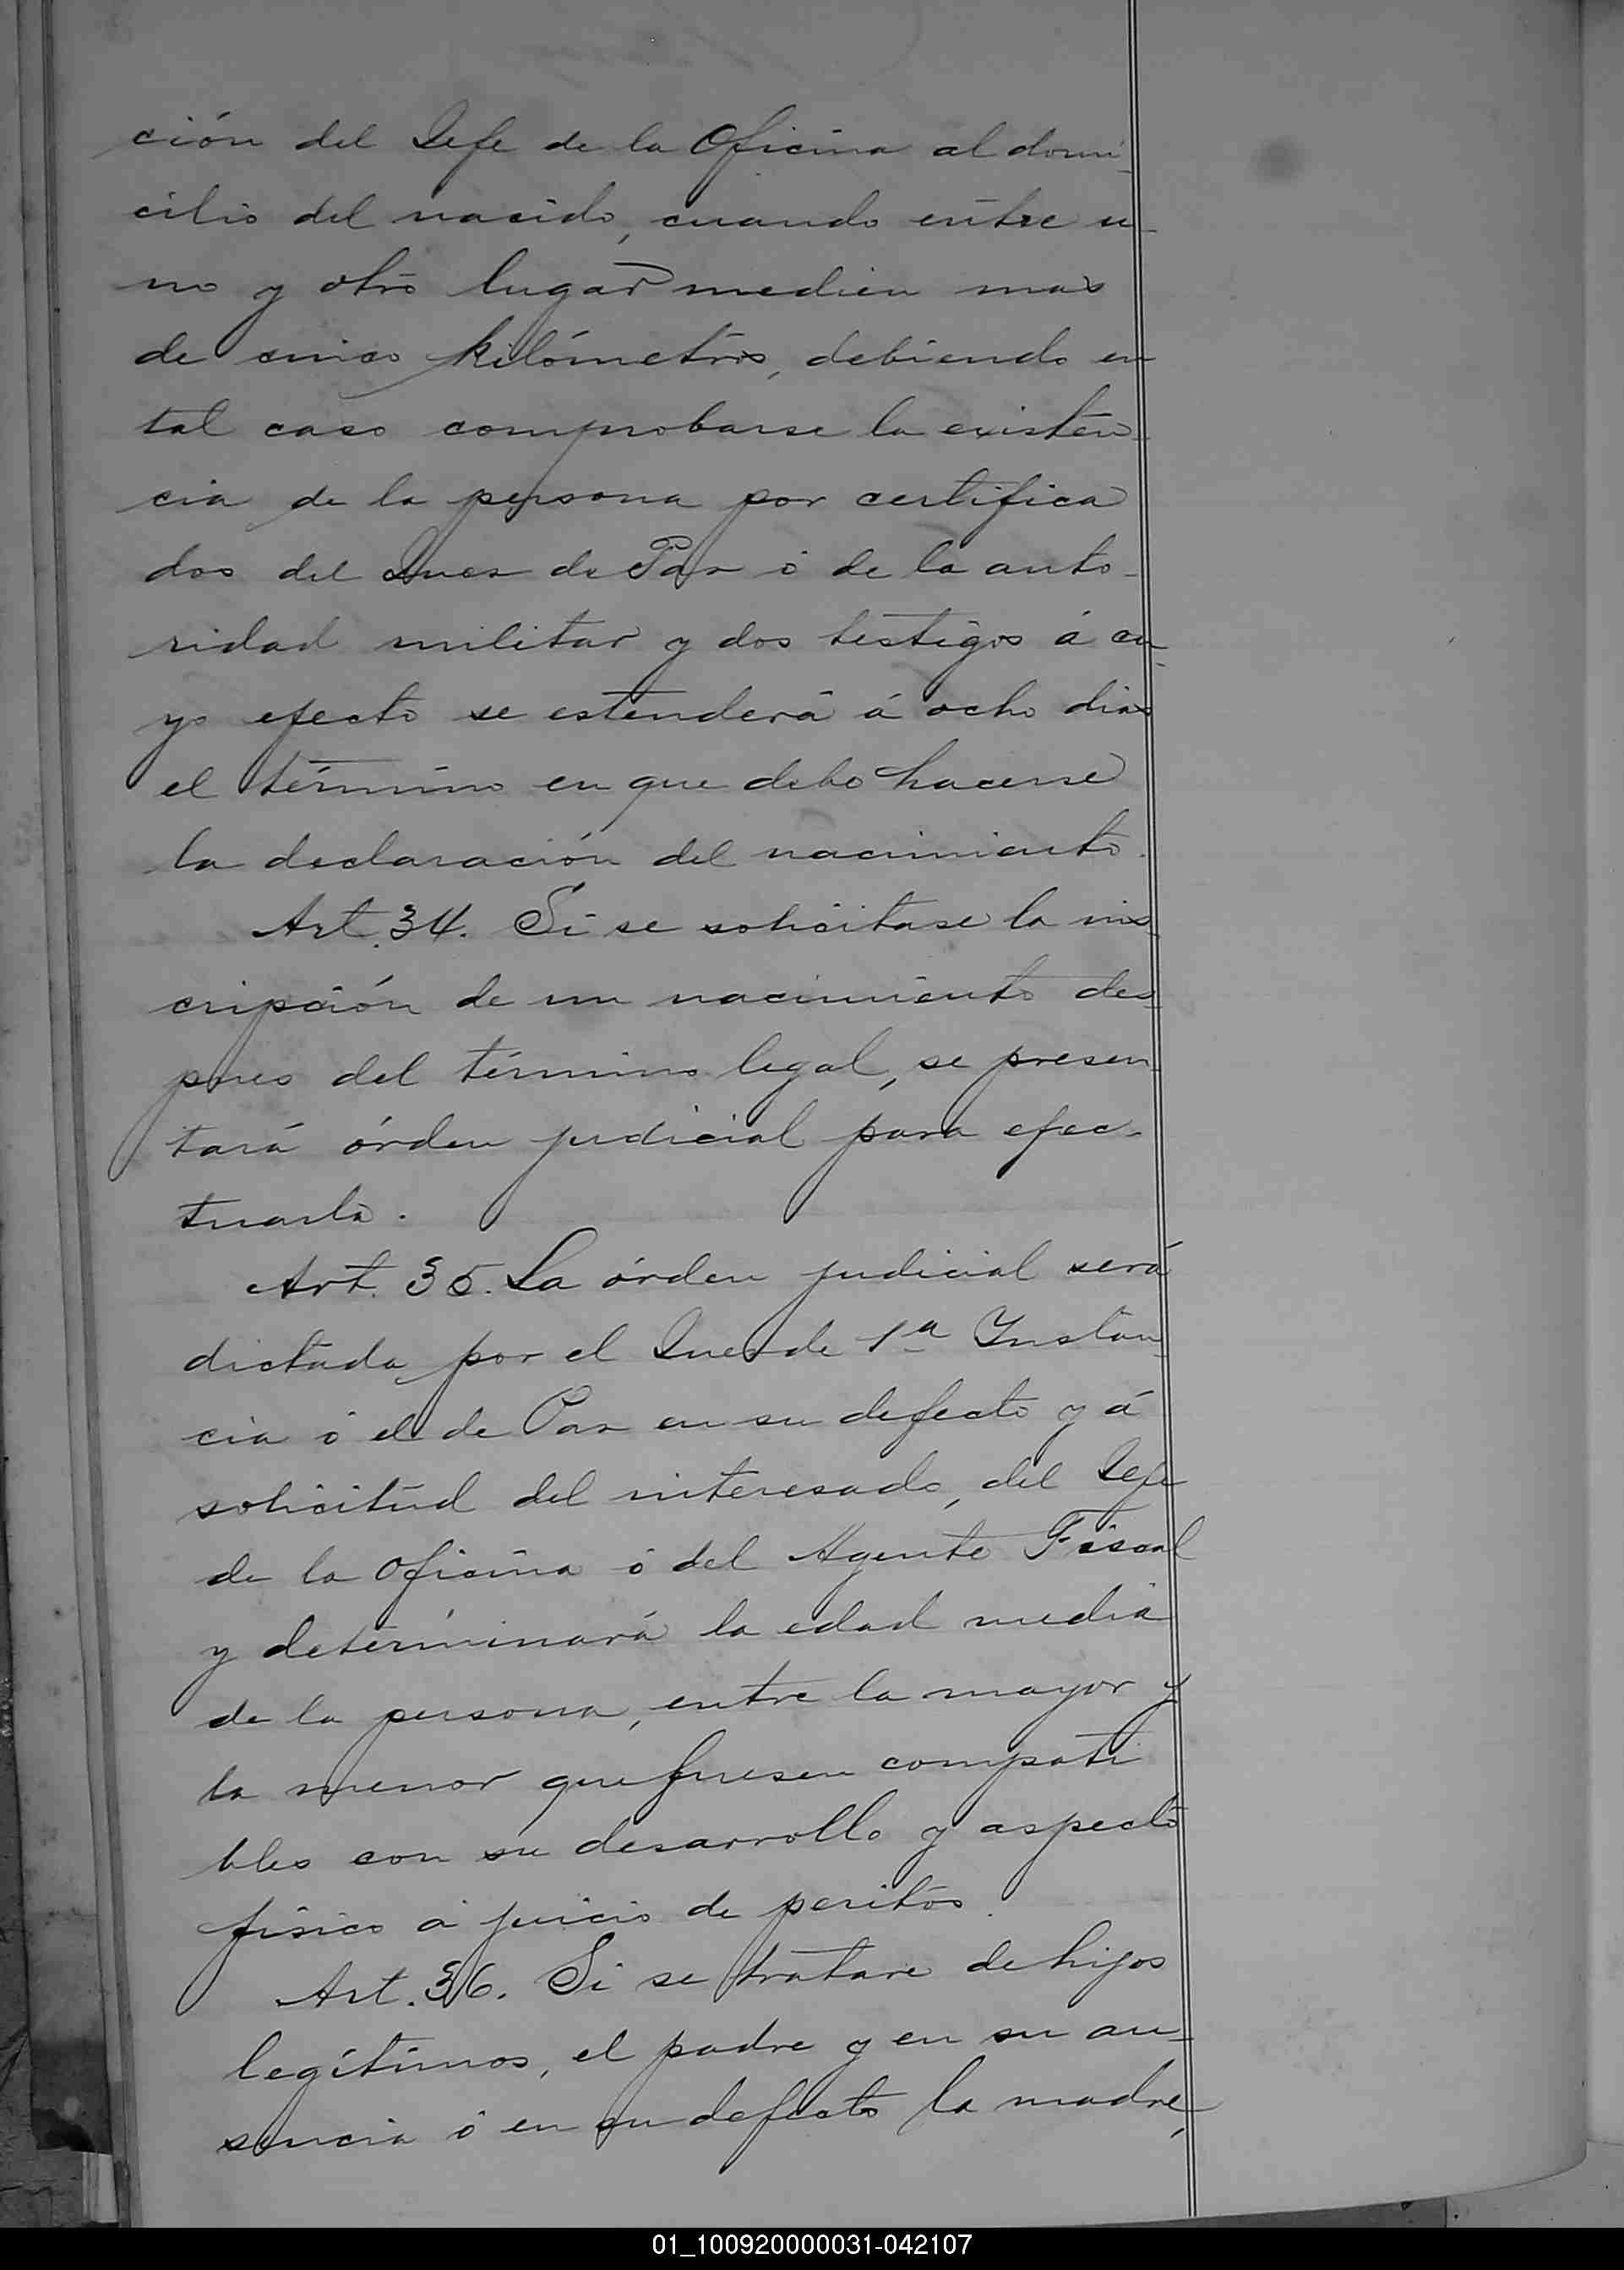 ción del Jefe de la Oficina al domi-
cilio del nacido, cuando entre u-
no y otro lugar medien mas
de cinco kilómetros, debiendo en
tal caso comprobarse la existen-
cia de la persona por certifica
dos del Juez de Paz ó de la auto-
ridad militar y dos testigos á cu-
yo efecto se estenderá á ocho dias
el término en que debe hacerse
la declaración del nacimiento.
Art. 34. Si se solicitase la ins-
cripción de un nacimiento des-
pues del término legal, se presen-
tará órden judicial para efec-
tuarla.
Art. 35. La órden judicial será
dictada por el Juez de 1ª Instan-
cia ó el de Paz en su defecto y á
solicitud del interesado, del Jefe
de la Oficina ó del Agente Fiscal
y determinará la edad media
de la persona, entre la mayor y
la menor que fuesen compati
bles con su desarrollo y aspecto
físico á juicio de peritos.
Art. 36. Si se tratare de hijos
legítimos, el padre y en su au-
sencia ó en su defecto la madre,
01_100920000031-042107